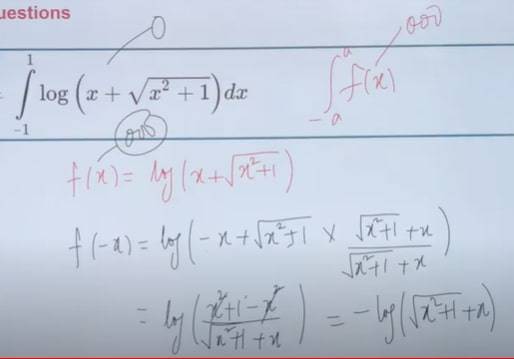 uestions
0
∫_{-1}^{1} log (x + √(x² + 1)) dx
odd
∫_{-a}^{a} f(x)
odd
f(x) = log(x+√(x²+1))
f(-x) = log(-x+√(x²+1) × (√(x²+1) +x)/(√(x²+1) +x))
= log((x²+1-x²)/(√(x²+1) +x)) = -log(√(x²+1) +x)